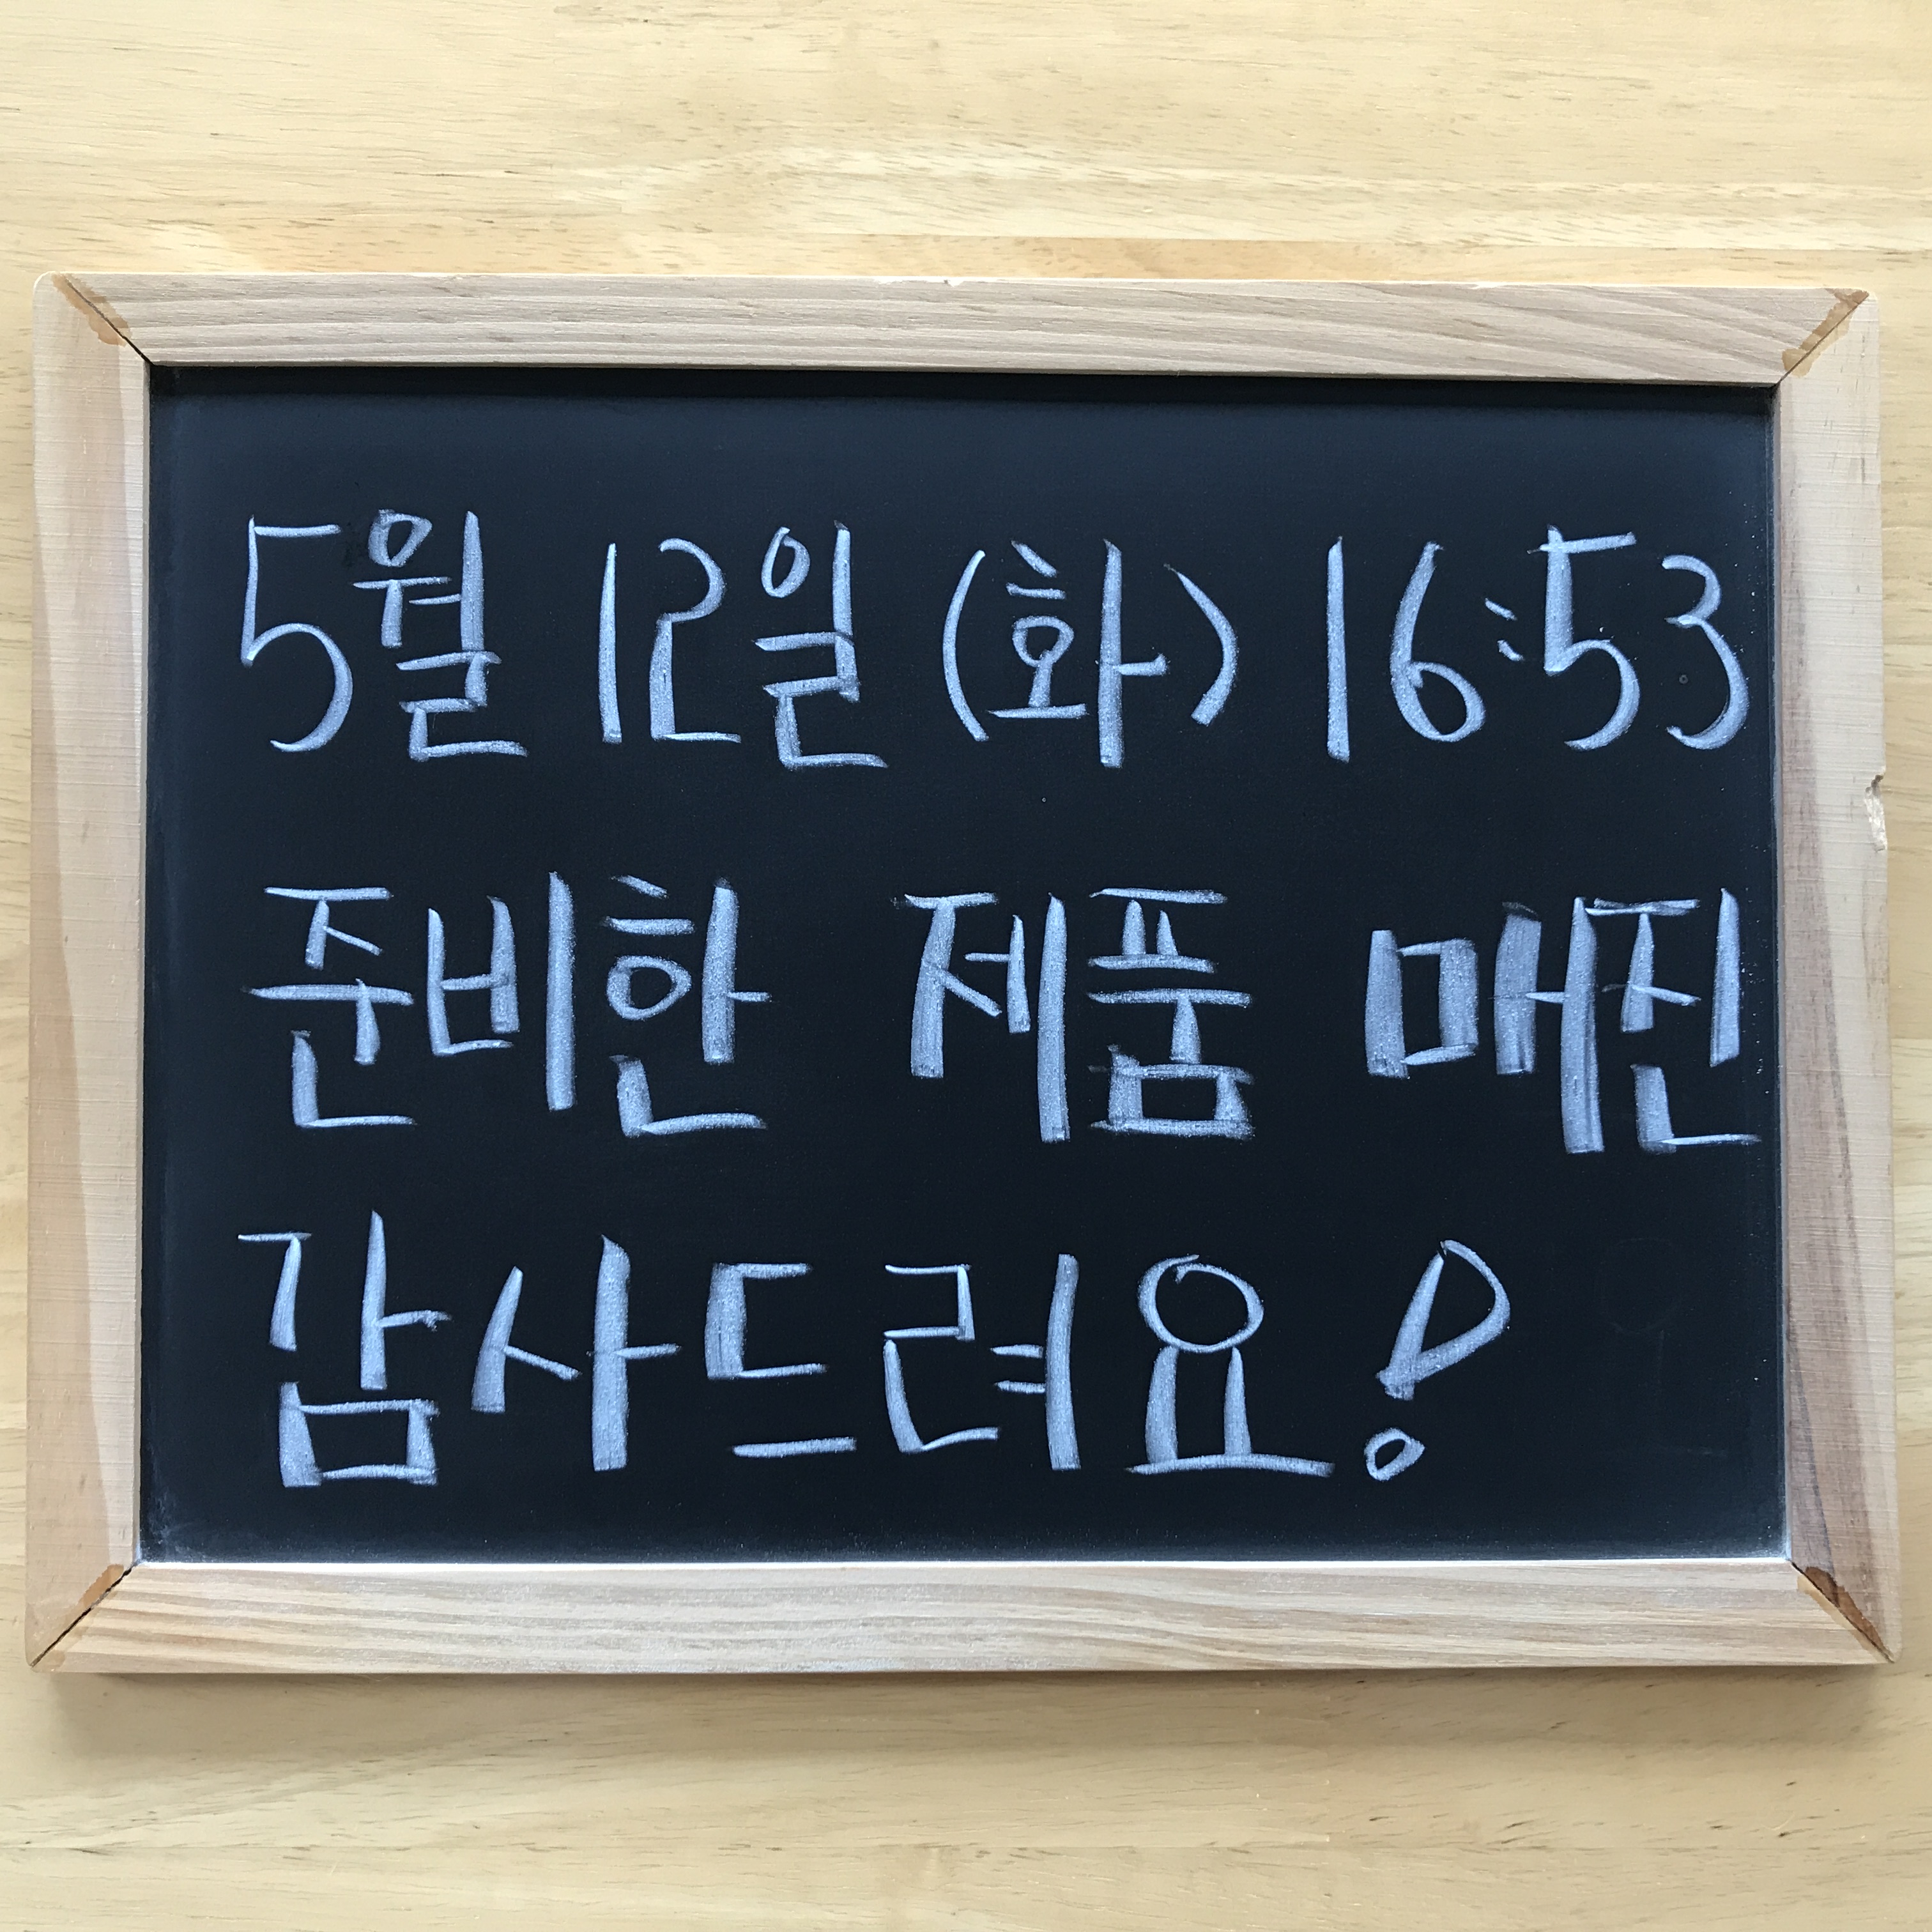 5월 12일 (화) 16:53
준비한 제품 매진
감사드려요!